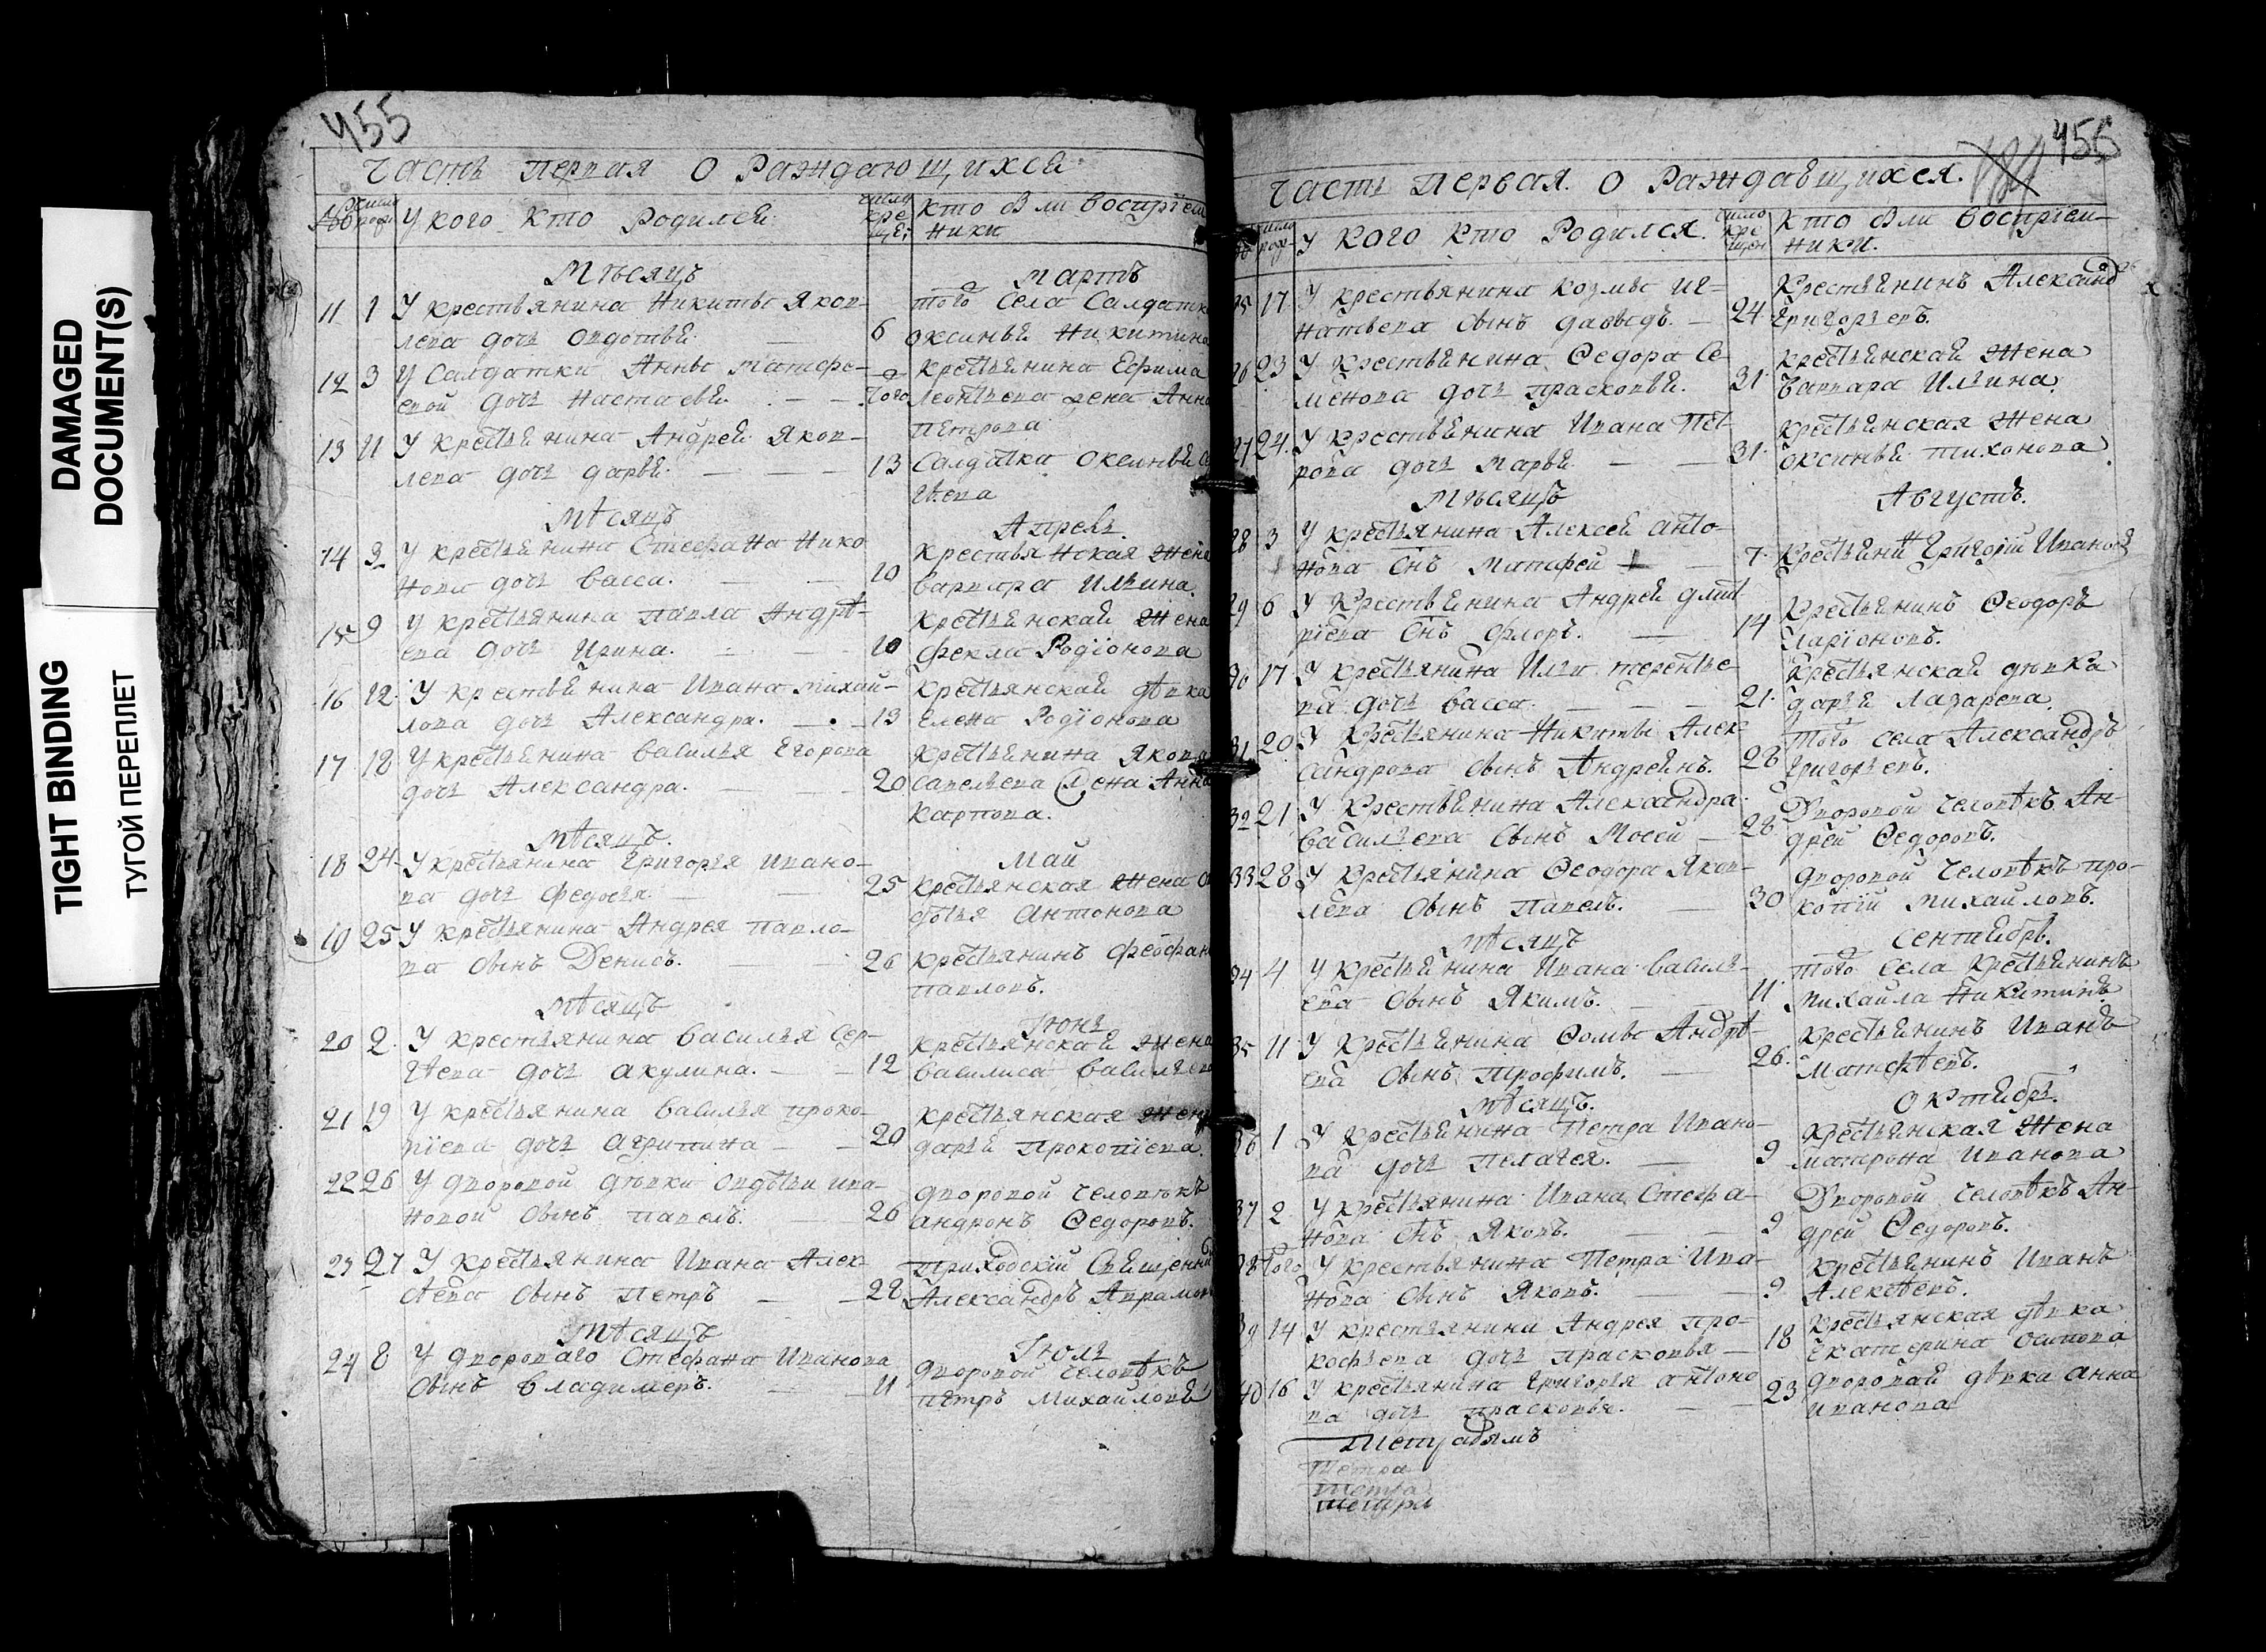 DAMAGED
DOCUMENT(S)
TIGHT BINDING
ТУГОЙ ПЕРЕПЛЕТ
455
Часть первая О Раждающихся
У кого кто Родился
число
кре
ще
кто были восприем
ники
Мѣсяцъ
Мартъ
11 1 У крестьянина Никиты Яков-
лева дочь Овдотья
6
того села Салдатк
оксинья Никитина
12 3 У Салдатки Анны Матфе-
евой дочь Настасья
того
крестьянина Ефима
Леонтьева жена Анна
Петрова
13 11 У крестьянина Андрея Яков-
лева дочь дарья
13 Салдатка оксинья
гѣева
Мѣсяцъ
Апрель
14 3 У крестьянина Стефана Нико
нова дочь васса.
10
Крестьянская жена
варвара Ильина.
15 9 У крестьянина павла Андрѣ-
ева дочь Ирина.
10
крестьянская жена
фекла Родіонова
16 12 У крестьянина Ивана михай-
лова дочь Александра.
13
крестьянская дѣвка
Елена Родіонова
17 18 У крестьянина василья Егорова
дочь Александра.
20
крестьянина Якова
савельева жена Анна
карпова.
мѣсяцъ
Май
18 24 У крестьянина григорья ивано-
ва дочь федосья.
25 крестьянская жена
дотья Антонова
19 25 У крестьянина Андрея павло-
ва сынъ Денисъ.
26 крестьянинъ феофан
павловъ.
мѣсяцъ
Іюнь
20 2 У крестьянина василья Сер-
гѣева дочь акулина.
12
крестьянская жена
василиса васильева
21 19 У крестьянина василья проко-
піева дочь агрипина
20
крестьянская жена
дарья Прокопіева.
22 26 У дворовой дѣвки овдотьи ива-
новой сынъ павелъ.
26
дворовой человѣкъ
андронъ Ѳедоровъ.
23 27 У крестьянина Ивана Алек-
сѣева сынъ Петръ
28
Приходскій Священни
Александръ Аврамов
мѣсяцъ
Іюль
24 8 У двороваго Стефана Иванова
сынъ владимеръ.
11
дворовой человѣкъ
петръ михайловъ
456
Часть первая. О Раждавшихся.
У кого кто Родился.
число
кре
щен
кто были восприем-
ники.
25 17 У крестьянина козмы иг-
натьева сынъ давыдъ.
24
крестьянинъ Александ
григорьевъ.
26 23 У крестьянина Ѳедора Се-
менова дочь прасковья.
31
крестьянская жена
варвара Ильина
27 24 У крестьянина Ивана Пет-
рова дочь марья
31
крестьянская жена
оксинья тихонова
мѣсяцъ
Августъ.
28 3 У крестьянина Алексея анто-
нова снъ матфей
7 крестьянинъ григорій Ивановъ
29 6 У крестьянина Андрея дмит
ріева снъ флоръ.
14
крестьянинъ Ѳеодоръ
ларіоновъ.
30 17 У крестьянина Ильи терентье-
ва дочь васса.
21
крестьянская дѣвка
дарья Лазарева.
31 20 У крестьянина Никиты Алек-
сандрова сынъ Андреянъ.
28
того села Александръ
григорьевъ.
32 21 У крестьянина Александра
васильева сынъ Мосей
28
дворовой человѣкъ Ан-
дрей Ѳедоровъ.
33 28 У крестьянина Ѳеодора Яков-
лева сынъ павелъ.
30
дворовой человѣкъ про-
копій михайловъ.
мѣсяцъ
Сентябрь.
34 4 У крестьянина Ивана василь-
ева сынъ Якимъ.
11
того села крестьянинъ
михаила никитинъ
35 11 У крестьянина Ѳомы Андрѣ-
ева сынъ трофимъ.
26
крестьянинъ Иванъ
матфѣевъ.
мѣсяцъ.
Октябрь.
36 1 У крестьянина Петра Ивано-
ва дочь пелагея.
9
крестьянская жена
матрона Иванова
37 2 У крестьянина Ивана Стефа-
нова снъ Яковъ.
9
дворовой человѣкъ Ан-
дрей Ѳедоровъ.
38 того У крестьянина Петра Ива-
нова сынъ Яковъ.
9
крестьянинъ Иванъ
Алексѣевъ.
39 14 У крестьянина Андрея про-
кофьева дочь прасковья
18
крестьянская дѣвка
екатерина осипова
40 16 У крестьянина григорья антоно
ва дочь прасковья.
23
дворовая дѣвка анна
иванова
Тетрадямъ
Тетра
Тетра
тетра